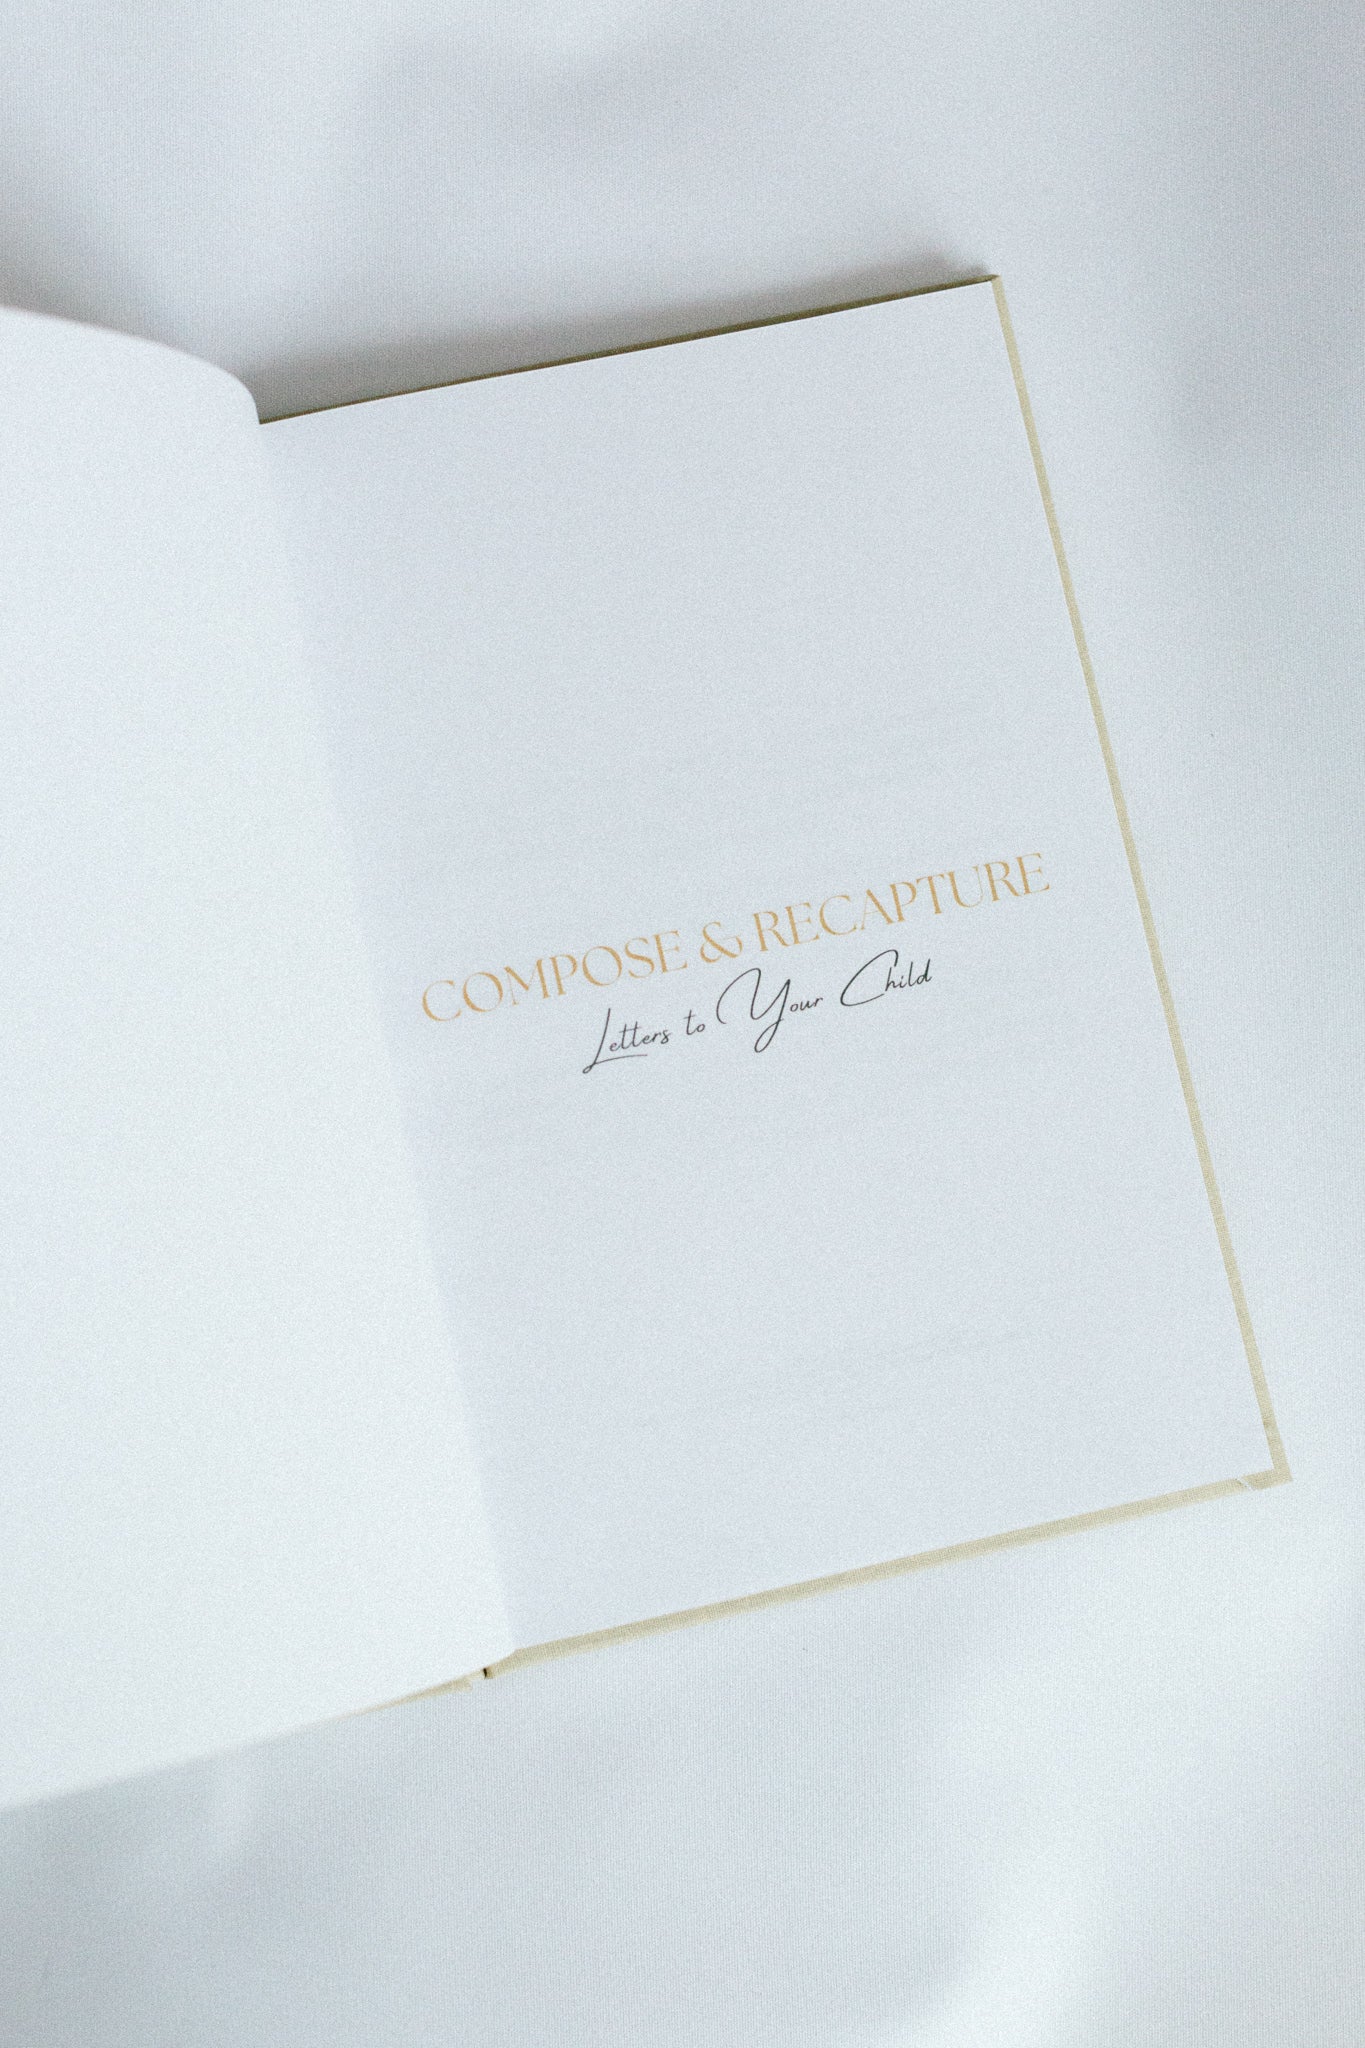 COMPOSE & RECAPTURE
Letters to Your Child